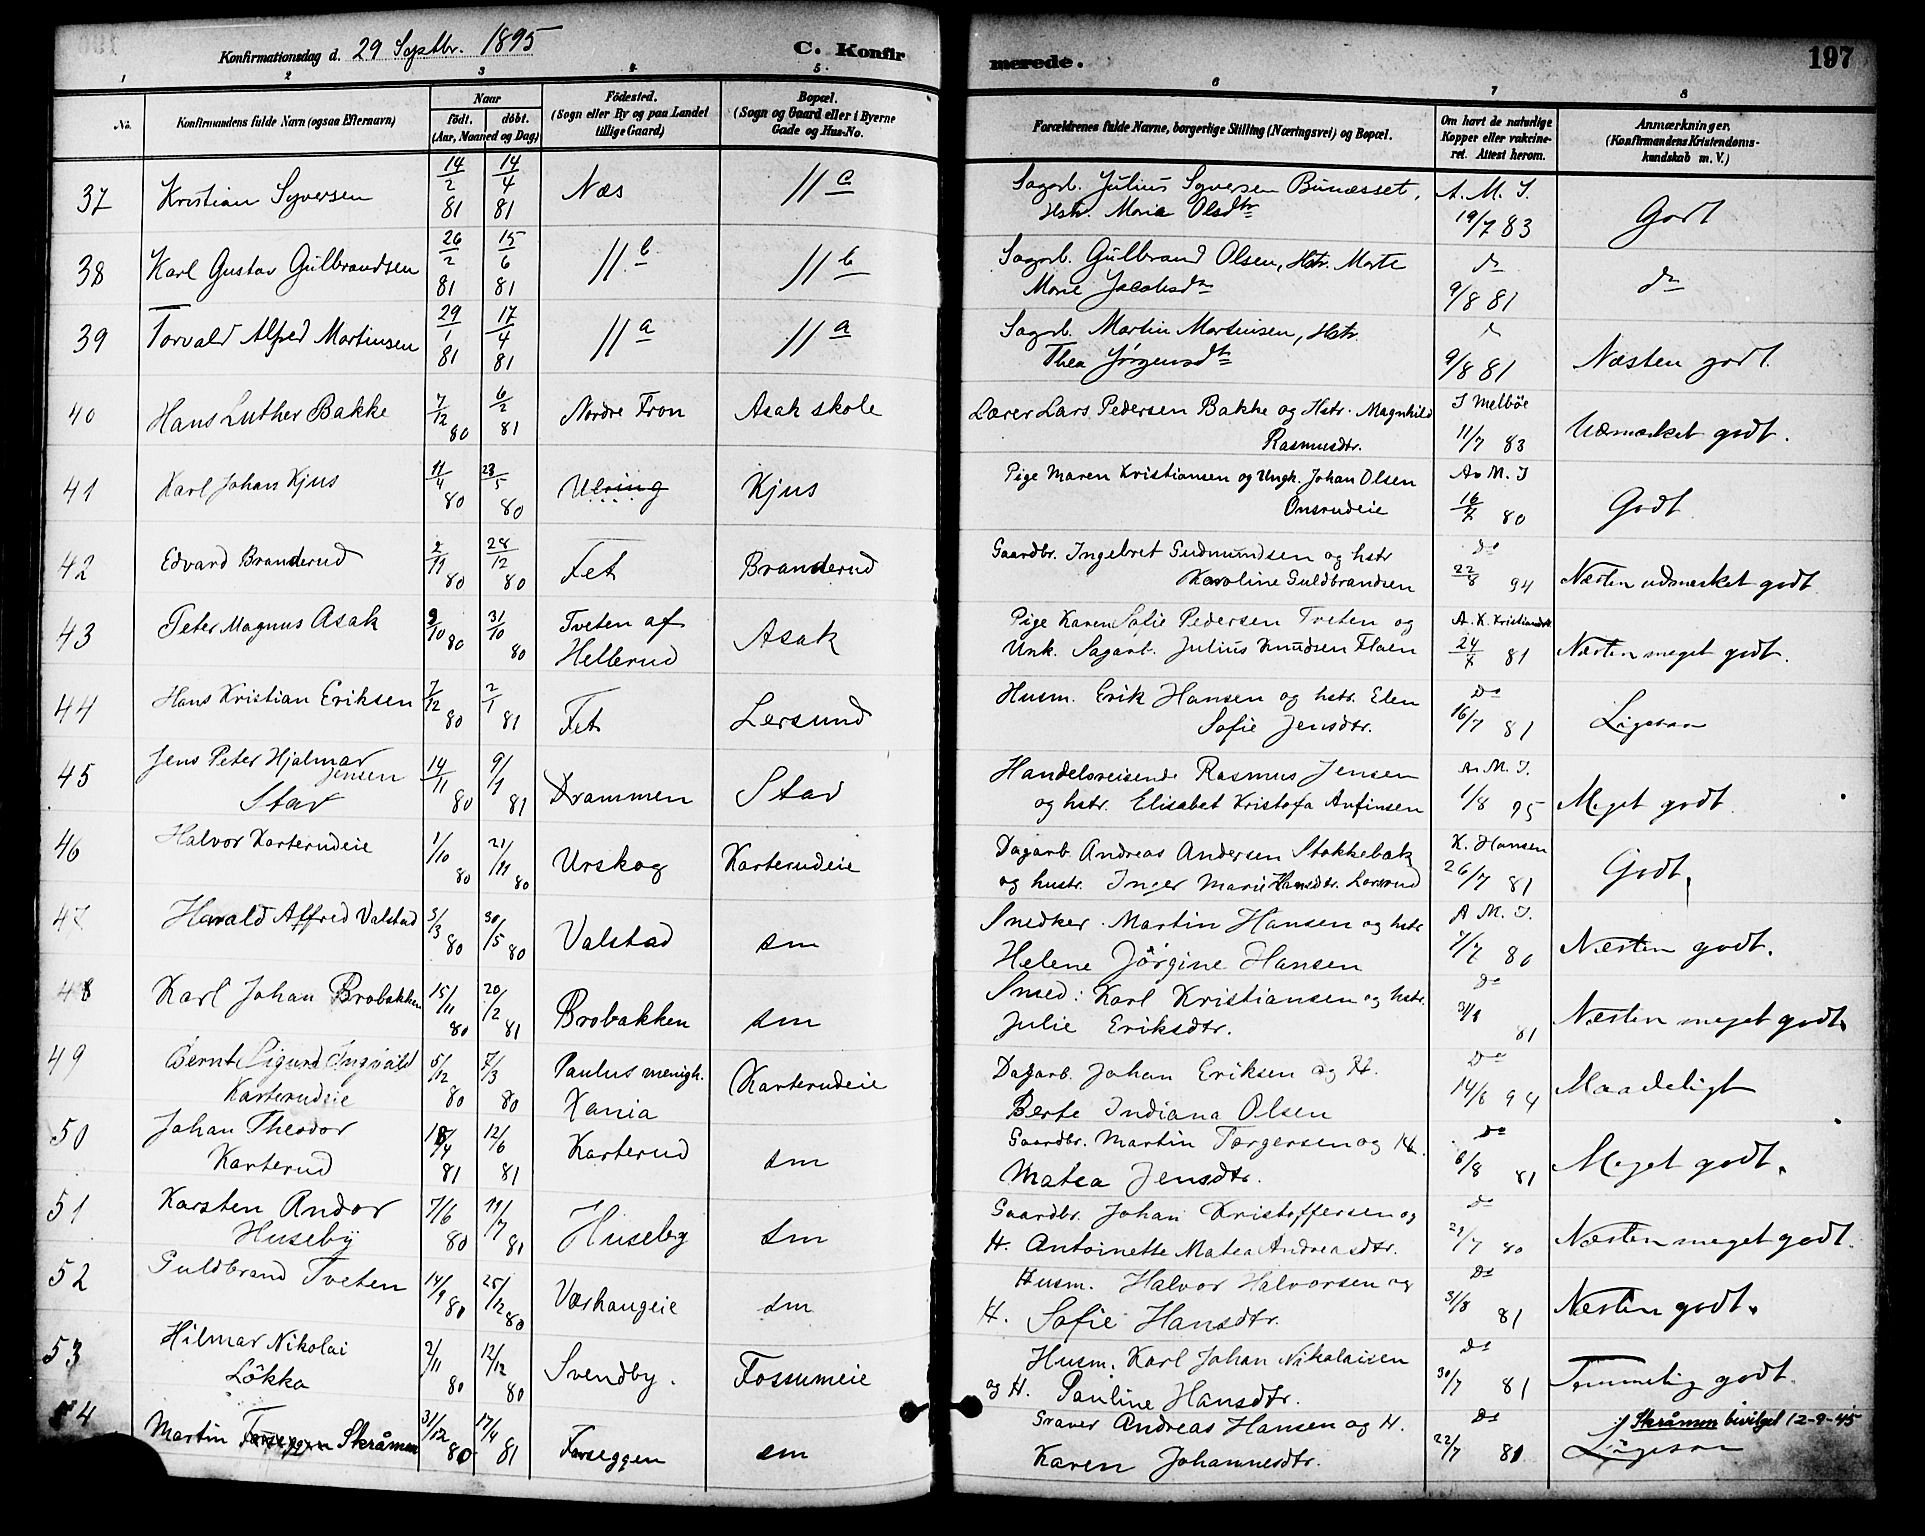 Konfirmationsdag d. 29 Septbr. 1895
C. Konfirmerede.
197
1 2 3 4 5 6 7 8
No. Konfirmandens fulde Navn (ogsaa Efternavn) Naar födt. döbt. (Aar, Maaned og Dag) Födested. (Sogn eller By og paa Landet tillige Gaard) Bopæl. (Sogn og Gaard eller i Byerne Gade og Hus-No. Forældrenes fulde Navne, borgerlige Stilling (Næringsvei) og Bopæl. Om havt de naturlige Kopper eller vakcineret. Attest herom. Anmærkninger. (Konfirmandens Kristendomskundskab m. V.)
37 Kristian Syversen 14/2 81 14/4 81 Næs // c Sagarb. Julius Syversen Bunæsset, Hstr. Marie Olsdtr A. M. I. 19/7 83 Godt
38 Karl Gustav Gulbrandsen 26/2 81 15/6 81 // b // b Sagarb. Gulbrand Olsen, Hstr. Marte Marie Jacobsdtr do 9/8 81 do
39 Torvald Alfred Martinsen 29/1 81 17/4 81 // a // a Sagarb. Martin Martinsen, Hstr. Thea Jörgensdtr 9/8 81 Næsten godt.
40 Hans Luther Bakke 7/12 80 6/2 81 Nordre Fron Asak skole Lærer Lars Pedersen Bakke og Hstr. Magnhild Rasmusdtr. I Melböe 11/7 83 Udmærket godt.
41 Karl Johan Kjus 11/4 80 23/5 80 Kjus Pige Maren Kristiansen og Ungk. Johan Olsen Onsrudeie A. M. I 16/7 80 Godt
42 Edvard Branderud 2/11 80 28/12 80 Fet Branderud Gaardbr. Ingebret Gudmundsen og hstr Karoline Guldbrandsen do 22/8 94 Næsten udmærket godt
43 Peter Magnus Asak 9/10 80 31/10 80 Tveten af Hellerud Asak Pige Karen Sofie Pedersen Tveten og Unk. Sagarb. Julius Knudsen Flaen 24/7 81 Næsten meget godt.
44 Hans Kristian Eriksen 7/12 80 2/1 81 Fet Lersund Husm. Erik Hansen og hstr. Elen Sofie Jensdtr. do 16/7 81 Ligesaa
45 Jens Peter Hjalmar Jensen Stav 14/11 80 9/1 81 Drammen Stav Handelsreisende Rasmus Jensen og hstr. Elisabet Kristofa Arfinsen A. M. I. 1/8 95 Meget godt.
46 Halvor Karterudeie 1/10 80 21/11 80 Urskog Karterudeie Dagarb. Andreas Andersen Stokkebæk og hustr. Inger Marie Hansdtr. K. Hansen 26/7 81 Godt.
47 Harald Alfred Valstad 3/3 80 30/5 80 Valstad sm Snedker Martin Hansen og hstr Helene Jörgine Hansen A M. I. 7/7 80 Næsten godt.
48 Karl Johan Brobakken 15/11 80 20/2 81 Brobakken sm Smed: Karl Kristiansen og hstr. Julie Eriksdtr. do 81 Næsten meget godt.
49 Bernt Sigurd Ingvald Karterudeie 5/12 80 7/3 80 Paulus menigh. Kania Karterudeie Dagarb. Johan Eriksen og H. Berte Indiana Olsen do 14/6 94 Maadeligt
50 Johan Theodor Karterud 18/4 81 12/6 81 Karterud sm Gaardbr. Martin Torgersen og H. Matea Jensdtr. do 6/8 81 Meget godt.
51 Karsten Andor Huseby 7/6 80 /7 Huseby sm Gaardbr. Johan Kristoffersen og H. Antoinette Matea Andreasdtr. do 21/7 80 Næsten meget godt.
52 Guldbrand Tveten 14/9 80 25/12 80 Vorhaugeie sm Husm. Halvor Halvorsen og H. Sofie Hansdtr. do 31/8 81 Næsten godt.
53 Hilmar Nikolai Lökka 2/11 80 12/12 80 Svendby. Fossumeie Husm. Karl Johan Nikolaisen og H. Pauline Hansdtr. do 30/7 81 Temmelig godt.
54 Martin Skråmm 31/12 80 17/4 81 Forseggen sm Graver Andreas Hansen og H. Karen Johannesdtr. do 22/7 81 Ligesaa
Skråmm bivilget 12-9-45